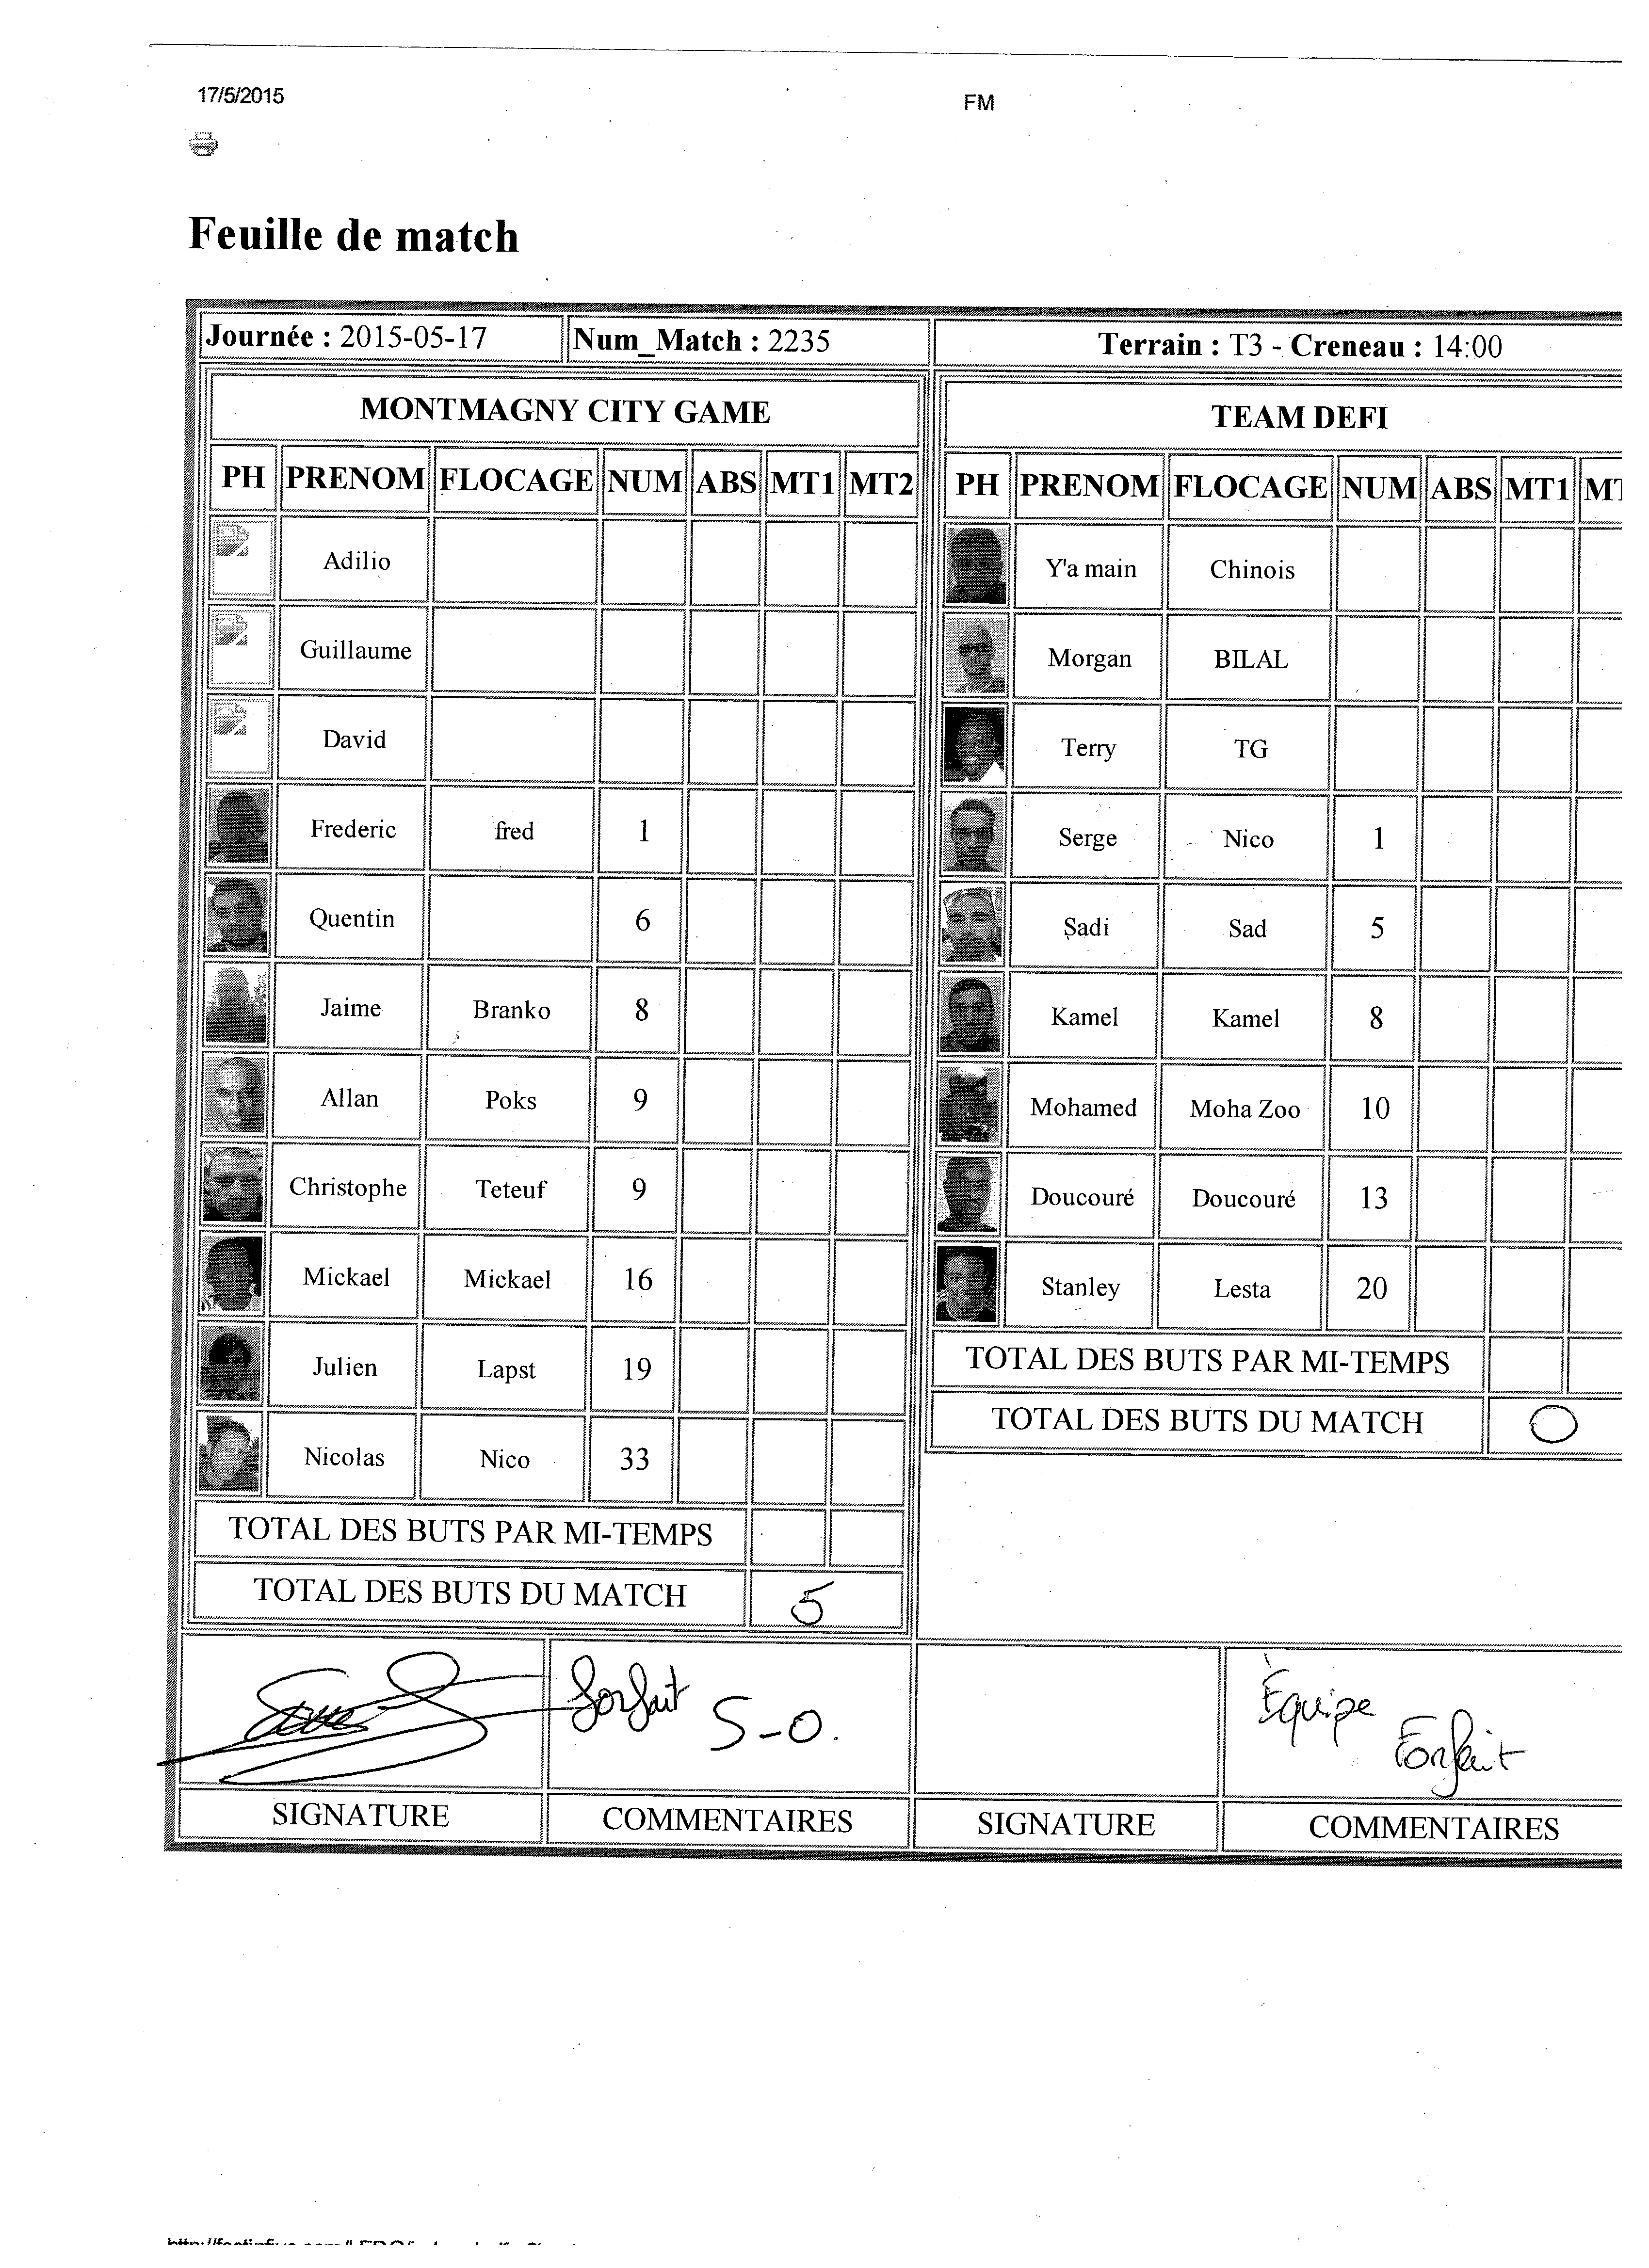 17/5/2015
FM
Feuille de match
Journée : 2015-05-17
Num_Match : 2235
Terrain : T3 - Creneau : 14:00
MONTMAGNY CITY GAME
PH PRENOM FLOCAGE NUM ABS MT1 MT2
Adilio
Guillaume
David
Frederic fred 1
Quentin 6
Jaime Branko 8
Allan Poks 9
Christophe Teteuf 9
Mickael Mickael 16
Julien Lapst 19
Nicolas Nico 33
TOTAL DES BUTS PAR MI-TEMPS
TOTAL DES BUTS DU MATCH 5
forfait 5-0.
SIGNATURE COMMENTAIRES
TEAM DEFI
PH PRENOM FLOCAGE NUM ABS MT1
Y'a main Chinois
Morgan BILAL
Terry TG
Serge Nico 1
Sadi Sad 5
Kamel Kamel 8
Mohamed Moha Zoo 10
Doucouré Doucouré 13
Stanley Lesta 20
TOTAL DES BUTS PAR MI-TEMPS
TOTAL DES BUTS DU MATCH 0
Équipe
Forfait
SIGNATURE COMMENTAIRES